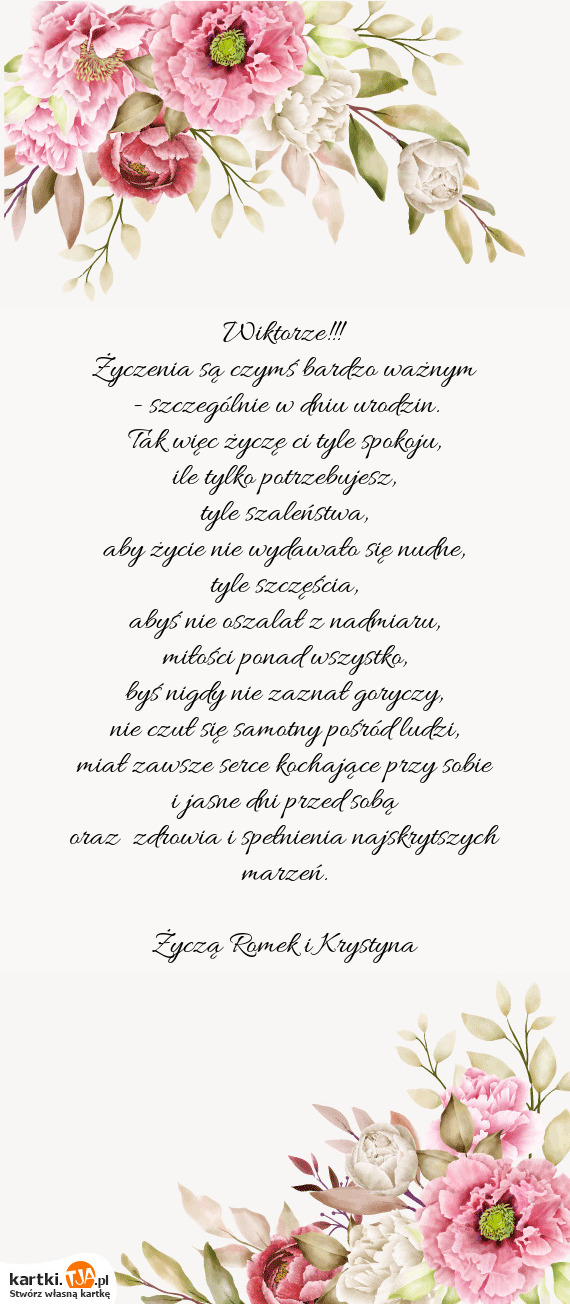 Wiktorze!!!
Życzenia są czymś bardzo ważnym
- szczególnie w dniu urodzin.
Tak więc życzę ci tyle spokoju,
ile tylko potrzebujesz,
tyle szaleństwa,
aby życie nie wydawało się nudne,
tyle szczęścia,
abyś nie oszalał z nadmiaru,
miłości ponad wszystko,
byś nigdy nie zaznał goryczy,
nie czuł się samotny pośród ludzi,
miał zawsze serce kochające przy sobie
i jasne dni przed sobą
oraz zdrowia i spełnienia najskrytszych
marzeń.
Życzą Romek i Krystyna
kartki.TJA.pl
Stwórz własną kartkę